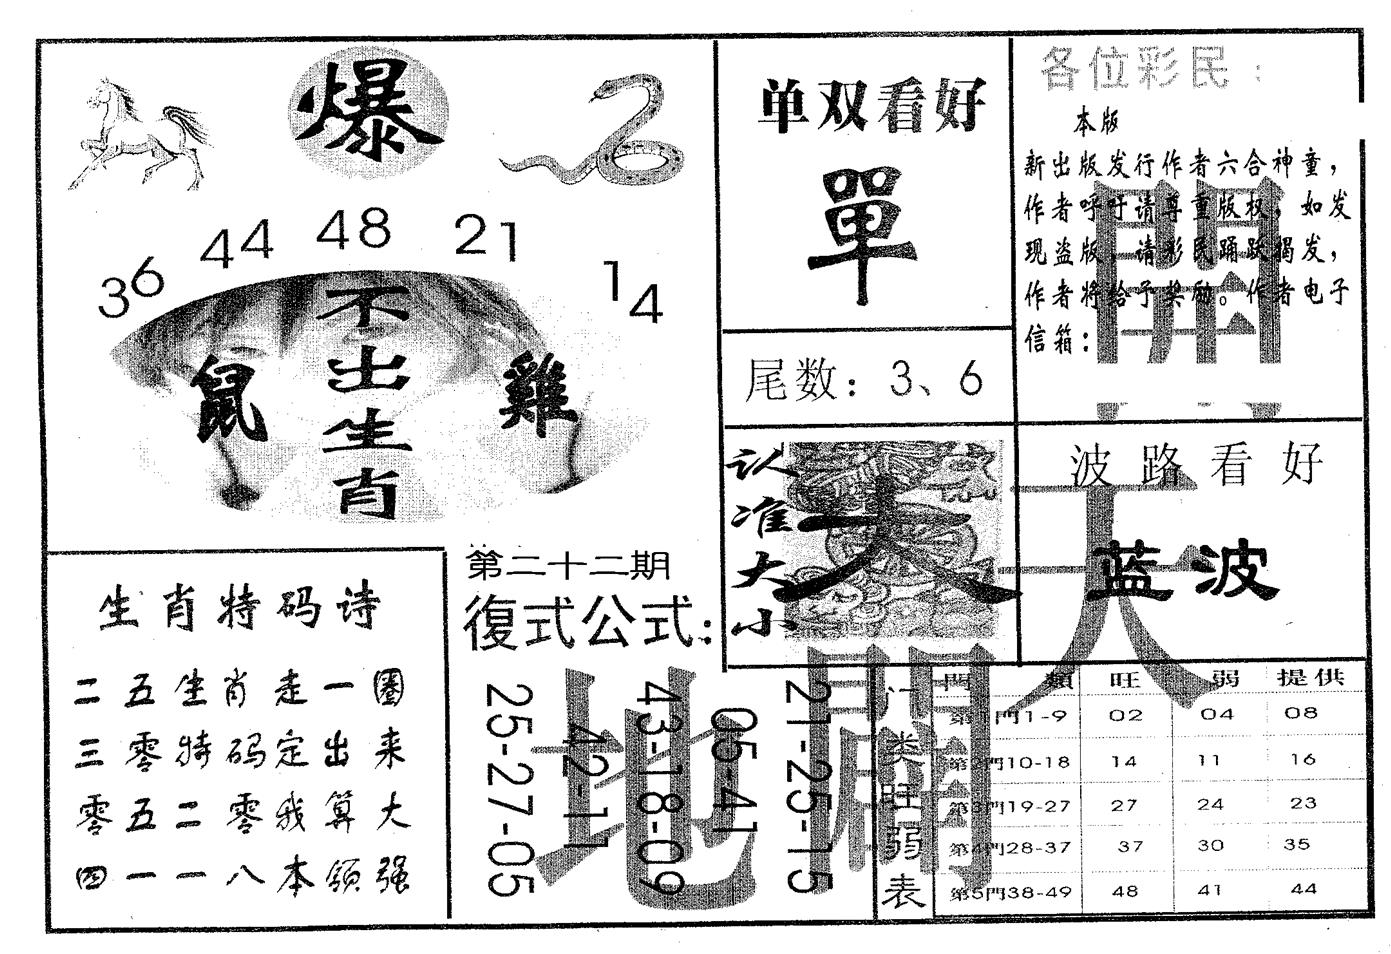 爆
36
44
48
21
14
不出生肖
鼠
雞
单双看好
單
尾数：3、6
各位彩民：
本版
新出版发行作者六合神童，
作者呼吁请尊重版权，如发
现盗版，请彩民踊跃揭发，
作者将给予奖励。作者电子
信箱：
开
认准大小
大
波路看好
蓝波
天
生肖特码诗
二五生肖走一圈
三零特码定出来
零五二零我算大
四一一八本领强
第二十二期
復式公式：
25-27-05
42-11
43-18-09
05-41
21-25-15
地
開
门类旺弱表
門 類 旺 弱 提供
第1門1-9 02 04 08
第2門10-18 14 11 16
第3門19-27 27 24 23
第4門28-37 37 30 35
第5門38-49 48 41 44